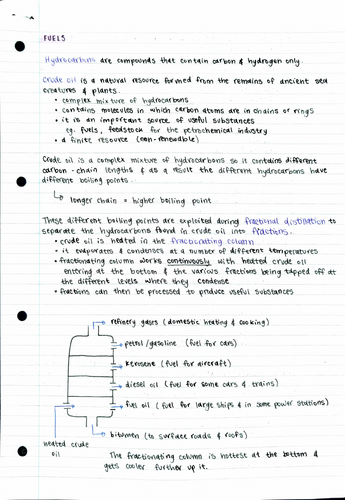 FUELS
Hydrocarbons are compounds that contain carbon & hydrogen only.
Crude oil is a natural resource formed from the remains of ancient sea
creatures & plants.
• complex mixture of hydrocarbons
• contains molecules in which carbon atoms are in chains or rings
• it is an important source of useful substances
eg. fuels, feedstock for the petrochemical industry
• a finite resource (non-renewable)
Crude oil is a complex mixture of hydrocarbons so it contains different
carbon-chain lengths & as a result the different hydrocarbons have
different boiling points.
↳ longer chain = higher boiling point
These different boiling points are exploited during fractional distillation to
separate the hydrocarbons found in crude oil into fractions.
• crude oil is heated in the fractionating column
• it evaporates & condenses at a number of different temperatures
• fractionating column works continuously with heated crude oil
entering at the bottom & the various fractions being tapped off at
the different levels where they condense
• fractions can then be processed to produce useful substances
refinery gases (domestic heating & cooking)
petrol/gasoline (fuel for cars)
kerosene (fuel for aircraft)
diesel oil (fuel for some cars & trains)
fuel oil (fuel for large ships & in some power stations)
bitumen (to surface roads & roofs)
heated crude
oil
The fractionating column is hottest at the bottom &
gets cooler further up it.